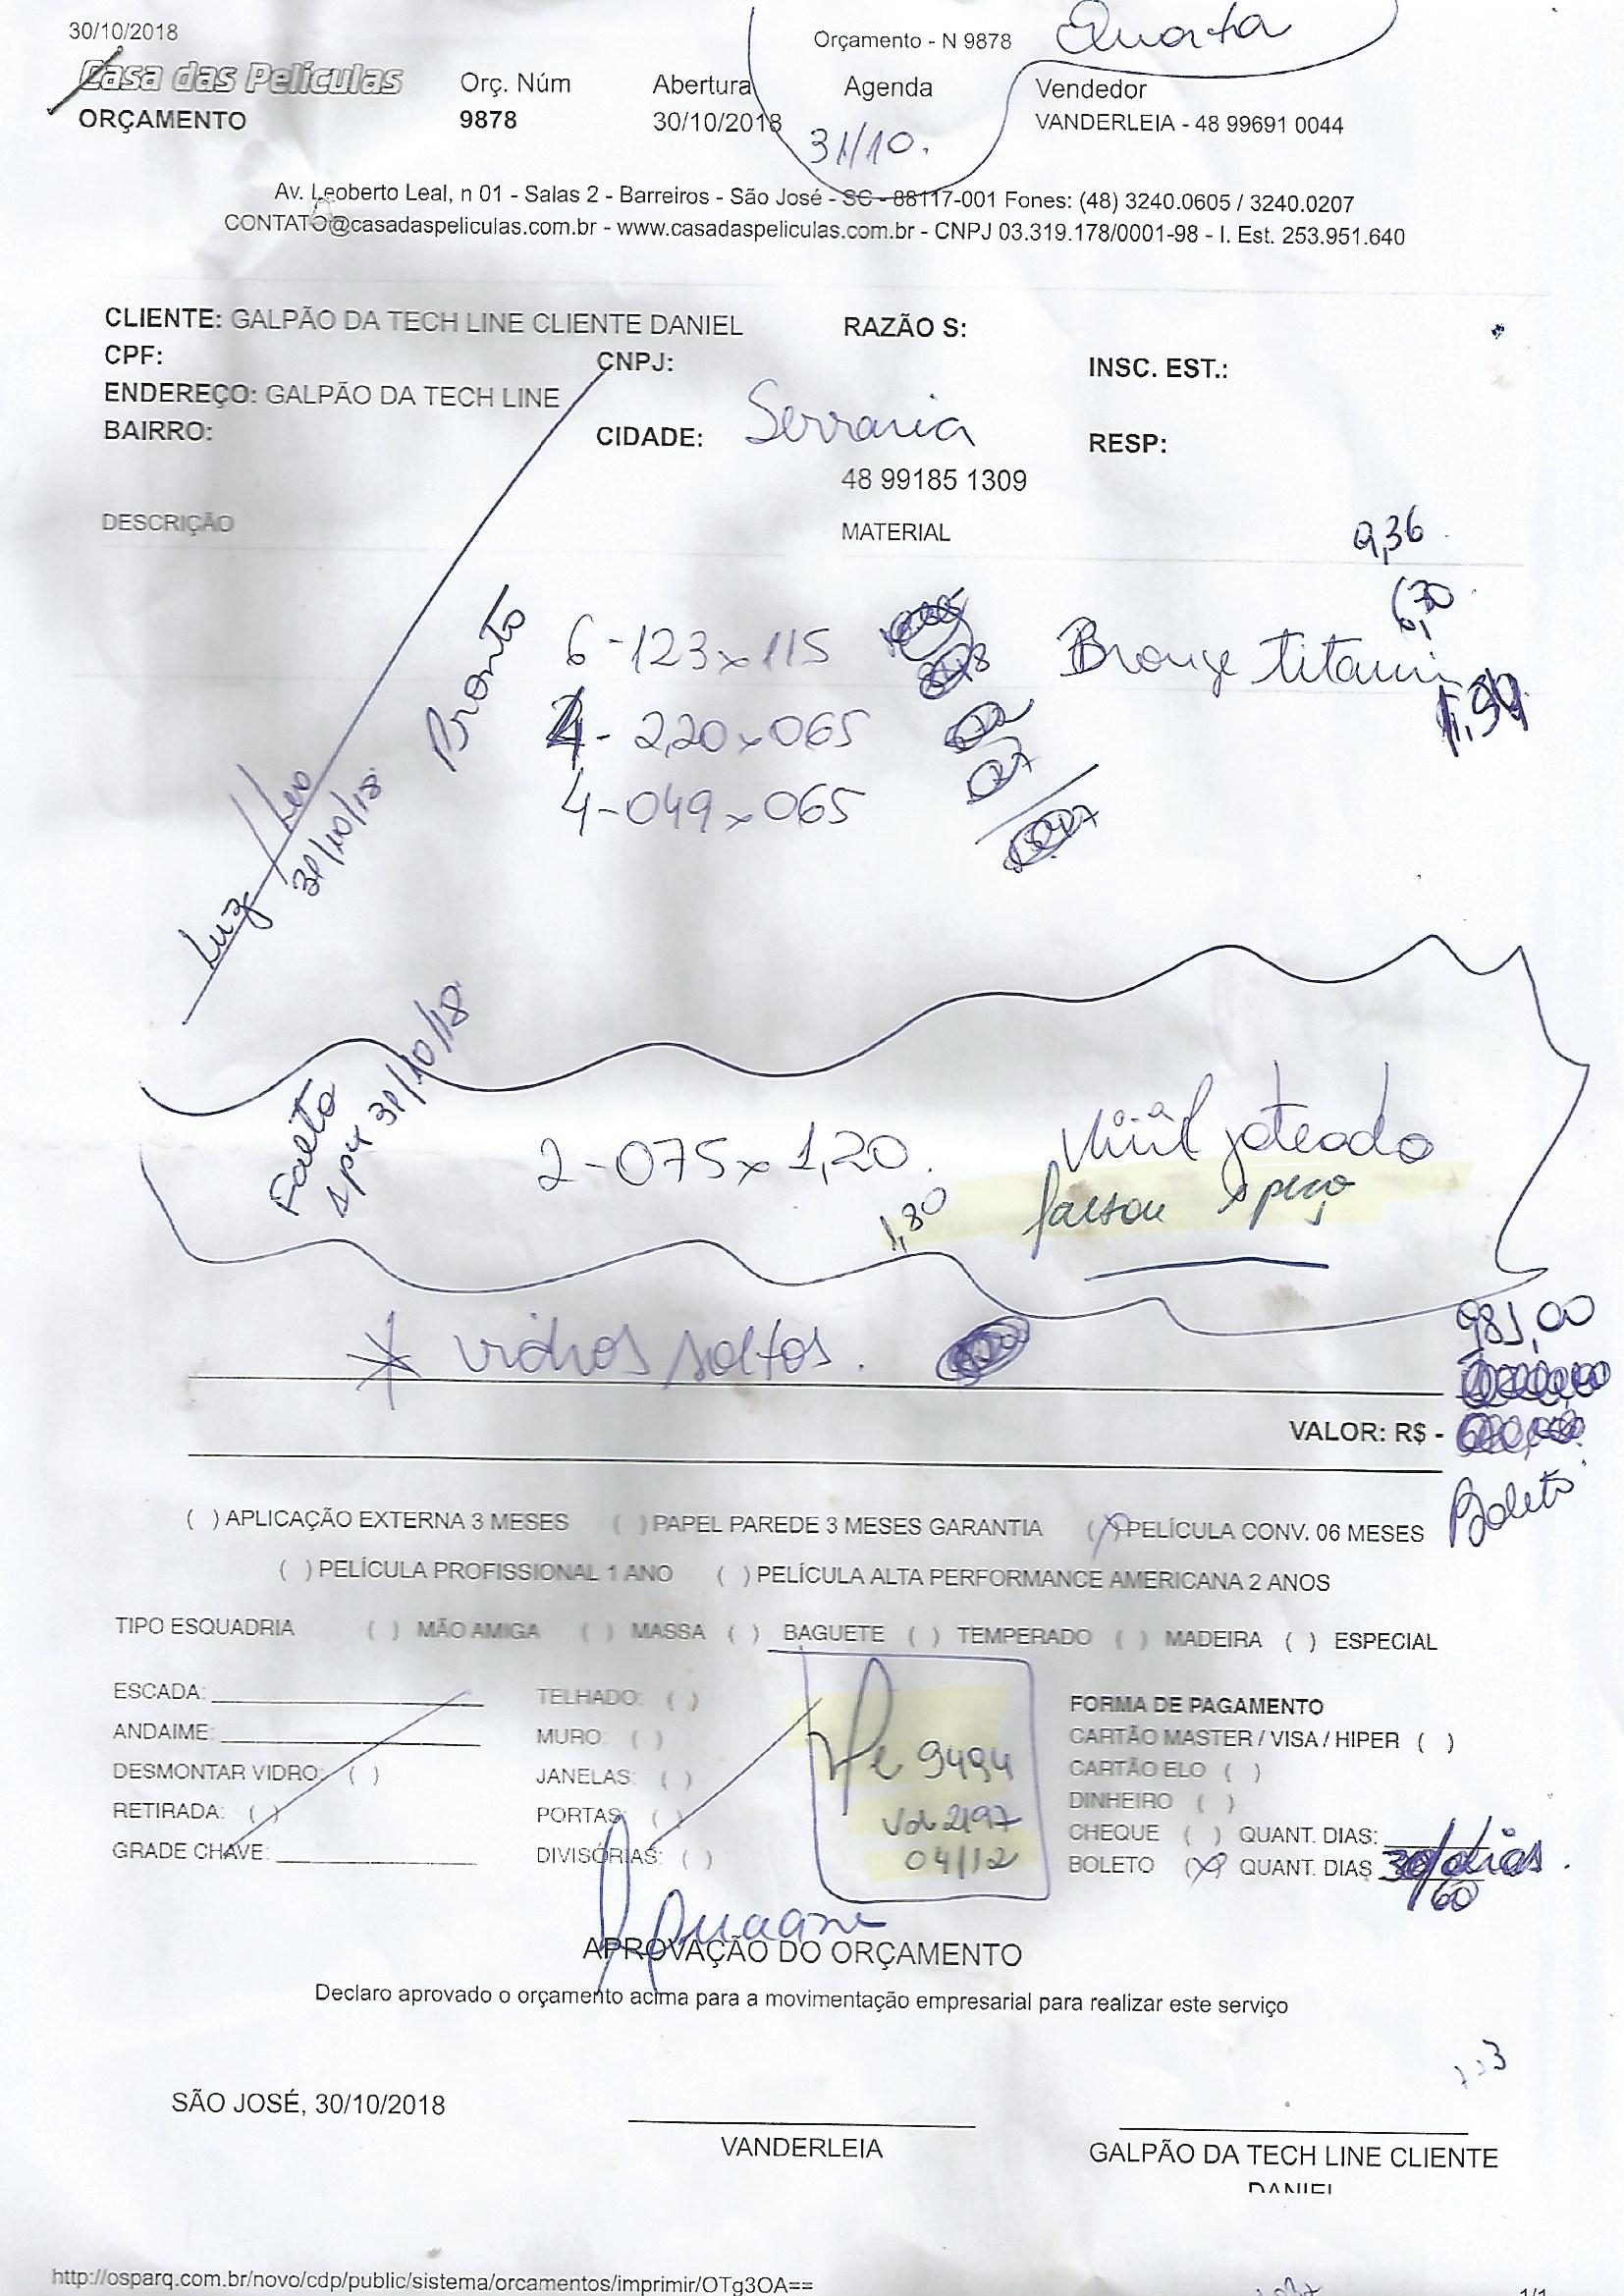 30/10/2018
Orçamento - N 9878
Quarta
Casa das Películas
ORÇAMENTO
Orç. Núm
9878
Abertura
30/10/2018
Agenda
31/10.
Vendedor
VANDERLEIA - 48 99691 0044
Av. Leoberto Leal, n 01 - Salas 2 - Barreiros - São José - SC - 88117-001 Fones: (48) 3240.0605 / 3240.0207
CONTATO@casadaspeliculas.com.br - www.casadaspeliculas.com.br - CNPJ 03.319.178/0001-98 - I. Est. 253.951.640
CLIENTE: GALPÃO DA TECH LINE CLIENTE DANIEL
RAZÃO S:
CPF:
CNPJ:
INSC. EST.:
ENDEREÇO: GALPÃO DA TECH LINE
BAIRRO:
CIDADE: Serraria
RESP:
48 99185 1309
DESCRIÇÃO
MATERIAL
9,36
Pronto
6-123x115
Bronze titani
4- 2,20x065
4-049x065
Luz / Leo
31/10/18
31/10/18
2-075x1,20.
jateado
1,80
peça
* vidros soltos.
985,00
VALOR: R$ -
Boleto
( ) APLICAÇÃO EXTERNA 3 MESES ( ) PAPEL PAREDE 3 MESES GARANTIA (X) PELÍCULA CONV. 06 MESES
( ) PELÍCULA PROFISSIONAL 1 ANO ( ) PELÍCULA ALTA PERFORMANCE AMERICANA 2 ANOS
TIPO ESQUADRIA ( ) MÃO AMIGA ( ) MASSA ( ) BAGUETE ( ) TEMPERADO ( ) MADEIRA ( ) ESPECIAL
ESCADA:
ANDAIME:
DESMONTAR VIDRO: ( )
RETIRADA: ( )
GRADE CHAVE:
TELHADO: ( )
MURO: ( )
JANELAS: ( )
PORTAS: ( )
DIVISÓRIAS: ( )
9494
2197
04/12
FORMA DE PAGAMENTO
CARTÃO MASTER / VISA / HIPER ( )
CARTÃO ELO ( )
DINHEIRO ( )
CHEQUE ( ) QUANT. DIAS:
BOLETO (X) QUANT. DIAS 30/ dias.
60
APROVAÇÃO DO ORÇAMENTO
Declaro aprovado o orçamento acima para a movimentação empresarial para realizar este serviço
SÃO JOSÉ, 30/10/2018
VANDERLEIA
GALPÃO DA TECH LINE CLIENTE
DANIEL
http://osparq.com.br/novo/cdp/public/sistema/orcamentos/imprimir/OTg3OA==
1/1